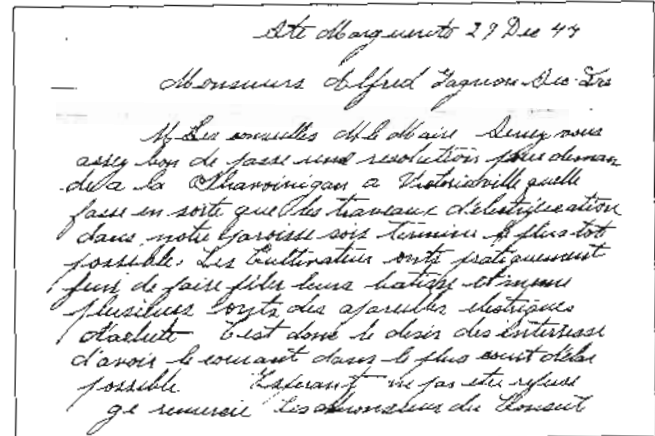 Ste Marguerite 29 Dec 44
Monsieurs Alfred Gagnon Sec. Trs
M Les conseillés M le Maire Seriez vous
assez bon de passe une resolution pour deman
de a la Shawinigan a Victoriaville quelle
fasse en sorte que les travaux d'electrification
dans notre paroisse sois terminer plus tot
possible. Les Cultivateur onts pratiquement
fini de faire filer leurs batisse et meme
plusieurs onts des apareilles electriques
d'achete C'est donc le desir des interresse
d'avoir le courant dans le plus court delai
possible. Esperant ne pas etre refuse
ge remercie Les monsieur du Conseil